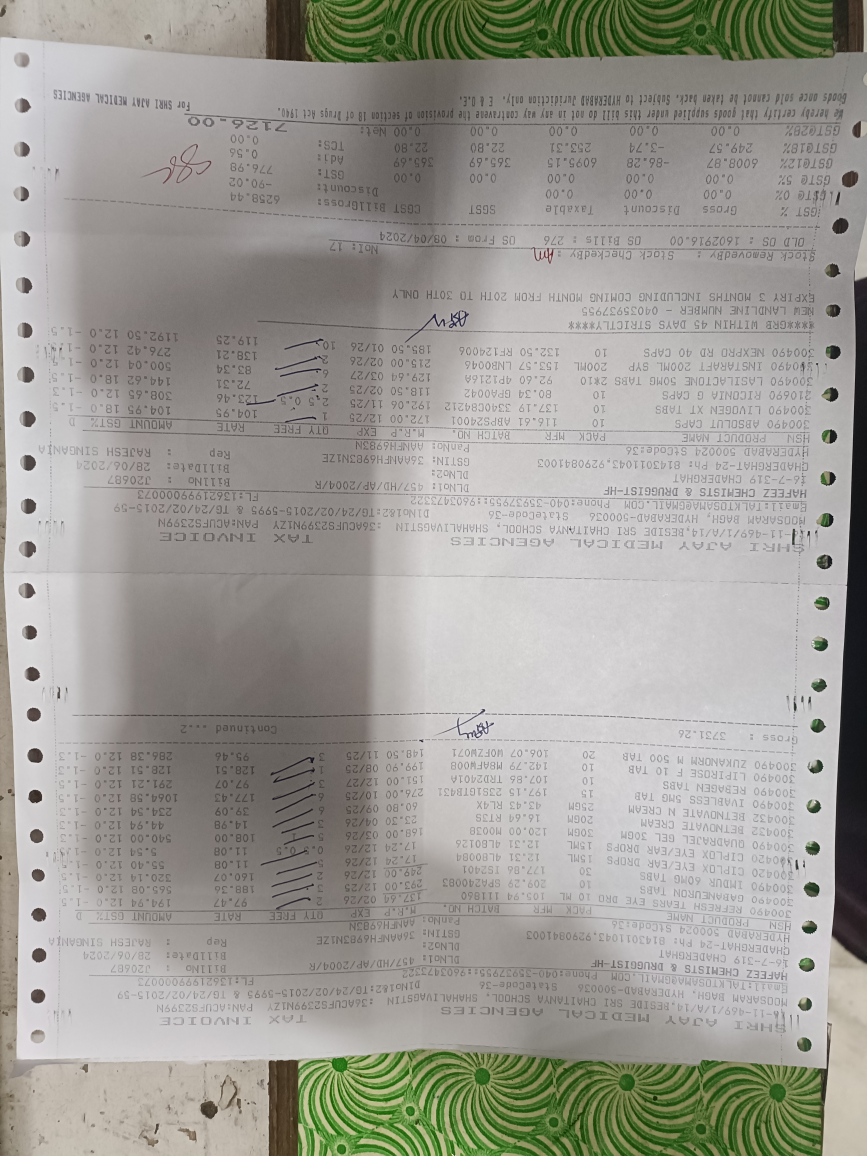 SHRI AJAY MEDICAL AGENCIES TAX INVOICE
16-11-469/1/A/14,BESIDE SRI CHAITANYA SCHOOL, SHAHLIVAGSTIN :36ACUFS2399N1ZY PAN:ACUFS2399N
MOOSARAM BAGH, HYDERABAD-500036 StateCode-36 DlNo1&2:TG/24/02/2015-5995 & TG/24/02/2015-59
Email:TALKTOSAMA@GMAIL.COM Phone:040-35937955::9603473322 FL:13621999000073
HAFEEZ CHEMISTS & DRUGGIST-HF DLNo1: 457/HD/AP/2004/R BillNo : J20687
16-7-319 CHADERGHAT DLNo2: BillDate: 28/06/2024
CHADERGHAT-24 Ph: 8143011043,9290841003 GSTIN: 36AANFH6983N1ZE Rep : RAJESH SINGANIA
HYDERABAD 500024 StCode:36 PanNo: AANFH6983N
HSN PRODUCT NAME PACK MFR BATCH NO. M.R.P EXP QTY FREE RATE AMOUNT GST% D
300490 REFRESH TEARS EYE DRO 10 ML 105.94 111860 137.64 02/26 2 97.47 194.94 12.0 -1.5
300490 GABANEURON TABS 10 209.29 SPA240083 293.00 12/25 3 188.36 565.08 12.0 -1.5
300490 INDUR 60MG TABS 30 177.86 152401 249.00 12/26 2 160.07 320.14 12.0 -1.5
300420 CIPLOX EYE/EAR DROPS 15ML 12.31 4LB0084 17.24 12/26 5 11.08 55.40 12.0
300420 CIPLOX EYE/EAR DROPS 15ML 12.31 4LB0126 17.24 12/26 0.5 0.5 11.08 5.54 12.0
300490 QUADRAJEL GEL 30GM 30GM 120.00 M0038 168.00 03/26 5 108.00 540.00 12.0
300432 BETNOVATE CREAM 20GM 16.64 RT3S 23.30 04/26 3 14.98 44.94 12.0
300432 BETNOVATE N CREAM 25GM 43.43 RL4X 60.80 09/25 6 39.09 234.54 12.0
300490 IVABLESS 5MG TAB 15 197.15 23SIGTIB431 276.00 10/25 6 177.43 1064.58 12.0 -1.5
300490 REBAGEN TABS 10 107.86 TRD2401A 151.00 12/27 3 97.07 291.21 12.0
300490 LIPIROSE F 10 TAB 10 142.79 MRAFW008 199.90 08/25 1 128.51 128.51 12.0
300490 ZUKANORM M 500 TAB 20 106.07 MOFZW071 148.50 11/25 3 95.46 286.38 12.0
Gross : 3731.26 Continued ...2
SHRI AJAY MEDICAL AGENCIES TAX INVOICE
16-11-469/1/A/14,BESIDE SRI CHAITANYA SCHOOL, SHAHLIVAGSTIN :36ACUFS2399N1ZY PAN:ACUFS2399N
MOOSARAM BAGH, HYDERABAD-500036 StateCode-36 DlNo1&2:TG/24/02/2015-5995 & TG/24/02/2015-59
Email:TALKTOSAMA@GMAIL.COM Phone:040-35937955::9603473322 FL:13621999000073
HAFEEZ CHEMISTS & DRUGGIST-HF DLNo1: 457/HD/AP/2004/R BillNo : J20687
16-7-319 CHADERGHAT DLNo2: BillDate: 28/06/2024
CHADERGHAT-24 Ph: 8143011043,9290841003 GSTIN: 36AANFH6983N1ZE Rep : RAJESH SINGANIA
HYDERABAD 500024 StCode:36 PanNo: AANFH6983N
HSN PRODUCT NAME PACK MFR BATCH NO. M.R.P EXP QTY FREE RATE AMOUNT GST% D
300490 ABSOLUT CAPS 10 116.61 ABPS24001 172.00 12/25 1 104.95 104.95 18.0 -1.5
300490 LIVOGEN XT TABS 10 137.19 3340C84212 192.06 11/25 2.5 0.5 123.46 308.65 12.0
210690 RICONIA G CAPS 10 80.34 GPA0042 118.50 02/25 2 72.31 144.62 18.0
300490 LASILACTONE 50MG TABS 2*10 92.60 4P1216A 129.64 03/27 6 83.34 500.04 12.0
300490 INSTARAFT 200ML SYP 200ML 153.57 LNR0046 215.00 02/26 2 138.21 276.42 12.0
300490 NEXPRO RD 40 CAPS 10 132.50 RF124006 185.50 01/26 10 119.25 1192.50 12.0 -1.5
****GRB WITHIN 45 DAYS STRICTLY****
NEW LANDLINE NUMBER - 04035937955
EXPIRY 3 MONTHS INCLUDING COMING MONTH FROM 20TH TO 30TH ONLY
Stock RemovedBy : Stock CheckedBy : NoI: 17
OLD OS : 1602916.00 OS Bills : 276 OS From : 09/04/2024
GST % Gross Discount Taxable SGST CGST BillGross: 6258.44
GST@ 0% 0.00 Discount: -90.02
GST@ 5% 0.00 0.00 0.00 0.00 0.00 GST: 776.98
GST@12% 6008.87 -86.28 6095.15 365.69 365.69 Adj: 0.56
GST@18% 249.57 -3.74 253.31 22.80 22.80 TCS: 0.00
GST@28% 0.00 0.00 0.00 0.00 0.00 Net: 7126.00
We hereby certify that goods supplied under this bill do not in any way contravene the provision of section 18 of Drugs Act 1940.
Goods once sold cannot be taken back. Subject to HYDERABAD Juridiction only. E & O.E. For SHRI AJAY MEDICAL AGENCIES